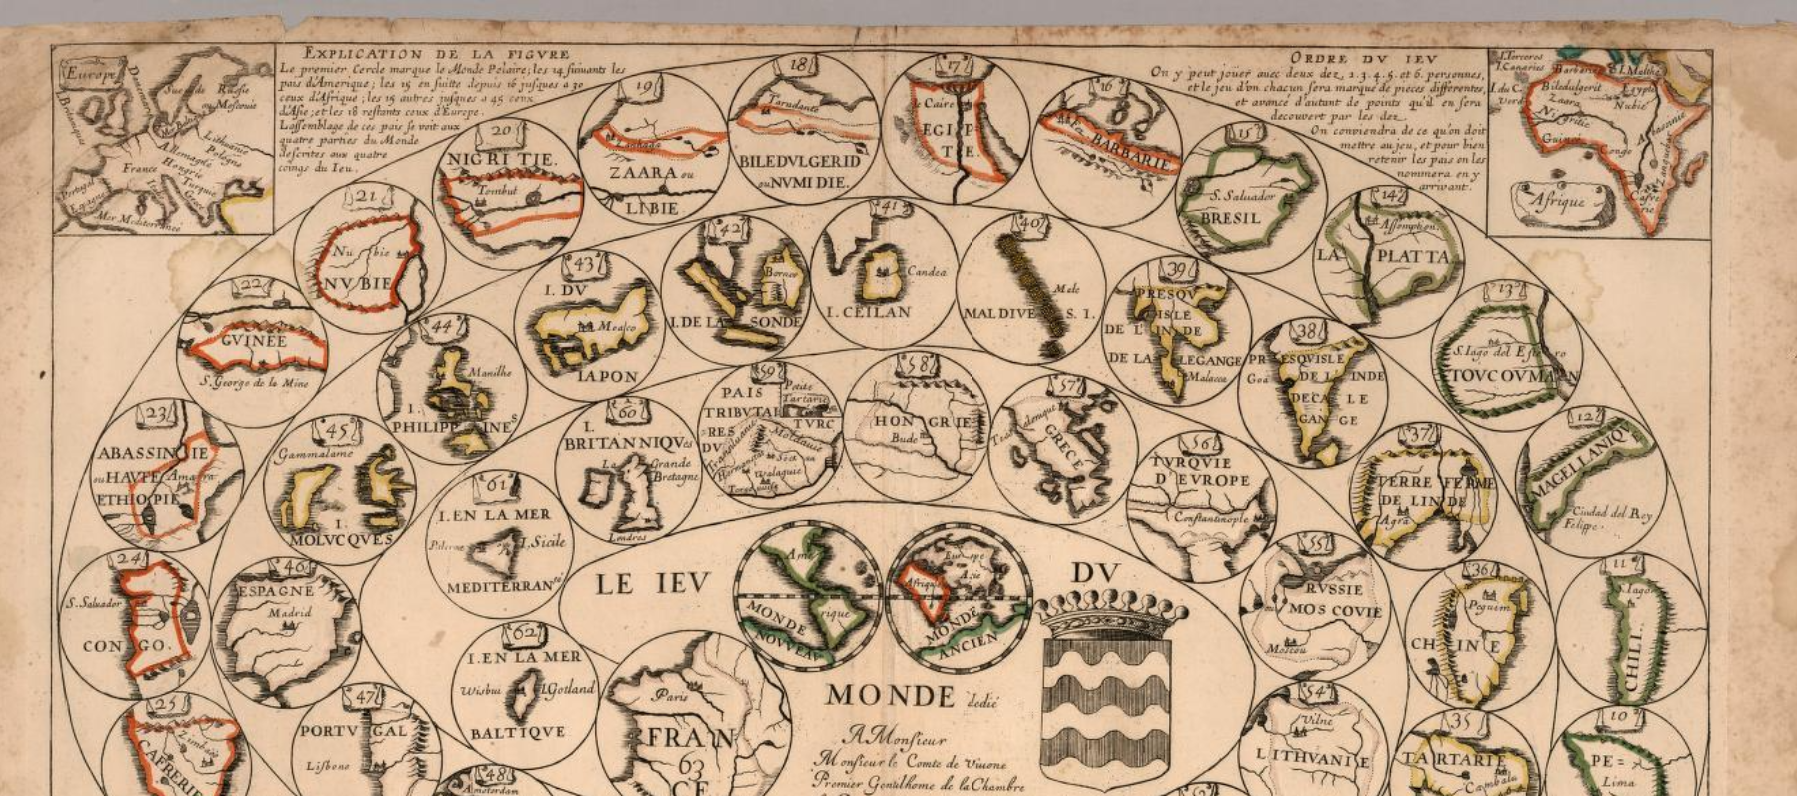 EXPLICATION DE LA FIGVRE
Le premier Cercle marque le Monde Polaire; les 14 suiuants les
pais d'Amerique; les 15 en suitte depuis 16 jusques a 30
ceux d'Afrique; les 15 autres jusques a 45 ceux
d'Asie; et les 18 restants ceux d'Europe.
L'assemblage de ces pais se voit aux
quatre parties du Monde
descrites aux quatre
coings du Ieu.
ORDRE DV IEV
On y peut jouer avec deux dez, 1.3.4.5. et 6. personnes,
et le jeu d'un chacun sera marqué de pieces differentes,
et avancé d'autant de points qu'il en sera
decouvert par les dez.
On conviendra de ce qu'on doit
mettre au jeu, et pour bien
retenir les pais on les
nommera en y
arrivant.
Europe
Danemarc
Suede
Russie
ou Moscouie
Mer Baltique
Lithuanie
Pologne
Allemagne
Hongrie
France
Turquie
Grece
Portugal
Espagne
Mer Mediterranee
I. Terceres
I. Canaries
I. du C.
Verd
Barbarie
I. Malthe
Biledulgerit
Egypte
Zaara
Nubie
Nigritie
Abassinie
Guinee
Congo
Zanguebar
Cafre
rie
Afrique
17
le Caire
EGIPTE.
18
Tarudante
BILEDVLGERID
ou NVMIDIE.
19
ZAARA ou
LIBIE
20
NIGRITIE.
Tombut
21
Nubie
NVBIE
22
GVINEE
S. George de la Mine
23
ABASSINIE
ou HAVTE Amara
ETHIOPIE
24
S. Saluador
CONGO.
25
Zimbaoé
CAFRERIE
16
Fez
BARBARIE
15
S. Saluador
BRESIL
14
Assomption
LA PLATTA
13
S. Iago del Estero
TOVCOVMAN
12
MAGELLANIQVE
Ciudad del Rey
Felippe.
11
S. Iago
CHILI.
10
PE=
Lima
41
Candea
I. CEILAN
42
Borneo
I. DE LA SONDE
43
I. DV
Meaco
IAPON
44
Manilhe
I.
PHILIPPINES
45
Gammalame
I.
MOLVCQVES
46
ESPAGNE
Madrid
47
PORTVGAL
Lisbone
48
Amsterdam
40
Male
MALDIVES. I.
39
PRESQV
ISLE
DE L'INDE
DE LA LE GANGE
Malaca
38
PRESQVISLE
Goa DE L'INDE
DECA LE
GANGE
37
TERRE FERME
DE L'INDE
Agra
36
Pequim
CHINE
35
TARTARIE
Cambalu
58
HONGRIE
Bude
59
PAIS
TRIBVTAI
RES
DV TVRC
Petite
Tartarie
Transiluanie
Moldauie
Valaquie
60
I.
BRITANNIQVes
La Grande
Bretagne
Londres
61
I. EN LA MER
Palerme
I. Sicile
MEDITERRAN.ée
62
I. EN LA MER
Wisbui
I. Gotland
BALTIQVE
57
GRECE
56
TVRQVIE
D'EVROPE
Constantinople
55
RVSSIE
ou MOSCOVIE
Moscou
54
Vilne
LITHVANIE
Paris
FRAN
63
CE
LE IEV DV
Amerique
MONDE
NOVVEAV
Europe
Asie
Afrique
MONDE
ANCIEN
MONDE dedié
A Monsieur
Monsieur le Comte de Viuone
Premier Gentilhome de la Chambre